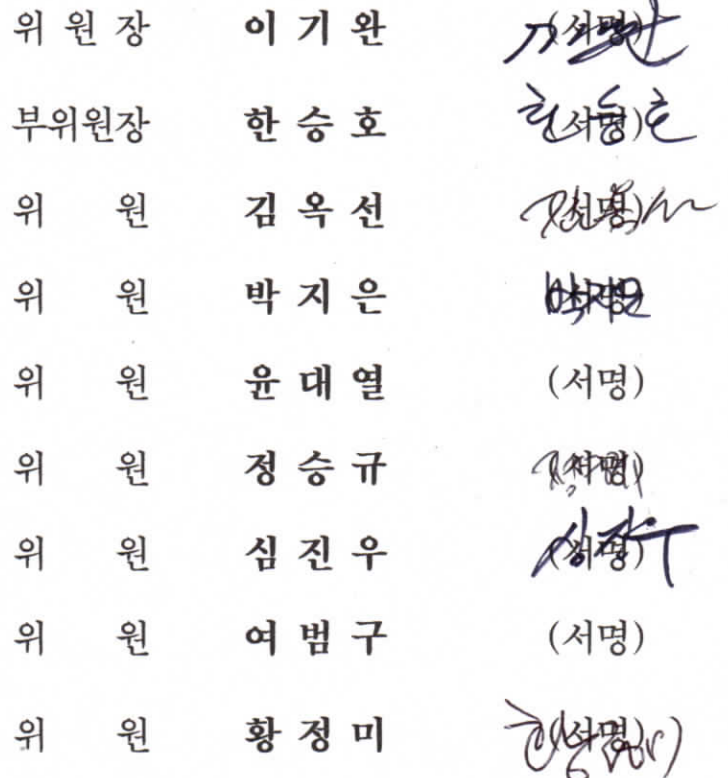 위 원 장 이 기 완 (서명)
부위원장 한 승 호 (서명) 한승호
위 원 김 옥 선 (서명)
위 원 박 지 은 (서명) 박지은
위 원 윤 대 열 (서명)
위 원 정 승 규 (서명)
위 원 심 진 우 (서명) 심진우
위 원 여 범 구 (서명)
위 원 황 정 미 (서명)